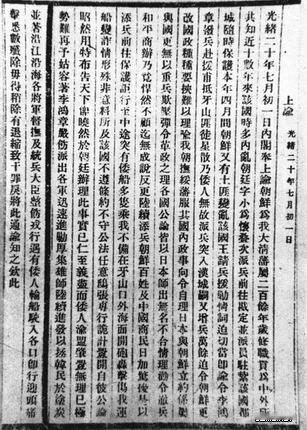 上諭 光緒二十年七月初一日
光緒二十年七月初一日內閣奉上諭朝鮮為我大清藩屬二百餘年歲修職貢為中外所
共知近十數年來該國時多內亂朝廷字小為懷疊次派兵前往戡定並派員駐紮該國都
城隨時保護本年四月間朝鮮又有土匪變亂該國王請兵援勦情詞迫切當即諭令李鴻
章撥兵赴援甫抵牙山匪徒星散乃倭人無故派兵突入漢城嗣又增兵萬餘迫令朝鮮更
改國政種種要挾難以理喻我朝撫綏藩服其國內政事向令自理日本與朝鮮立約係屬
與國更無以重兵欺壓強令革政之理各國公論皆以日本師出無名不合情理勸令撤兵
和平商辦乃竟悍然不顧迄無成說反更陸續添兵朝鮮百姓及中國商民日加驚擾是以
添兵前往保護詎行至中途突有倭船多隻乘我不備在牙山口外海面開砲轟擊傷我運
船變詐情形殊非意料所及該國不遵條約不守公法任意鴟張專行詭計釁開自彼公論
昭然用特布告天下俾曉然於朝廷辦理此事實已仁至義盡而倭人渝盟肇釁無理已極
勢難再予姑容著李鴻章嚴飭派出各軍迅速進勦厚集雄師陸續進發以拯韓民於塗炭
並著沿江沿海各將軍督撫及統兵大臣整飭戎行遇有倭人輪船駛入各口即行迎頭痛
擊悉數殲除毋得稍有退縮致干罪戾將此通諭知之欽此